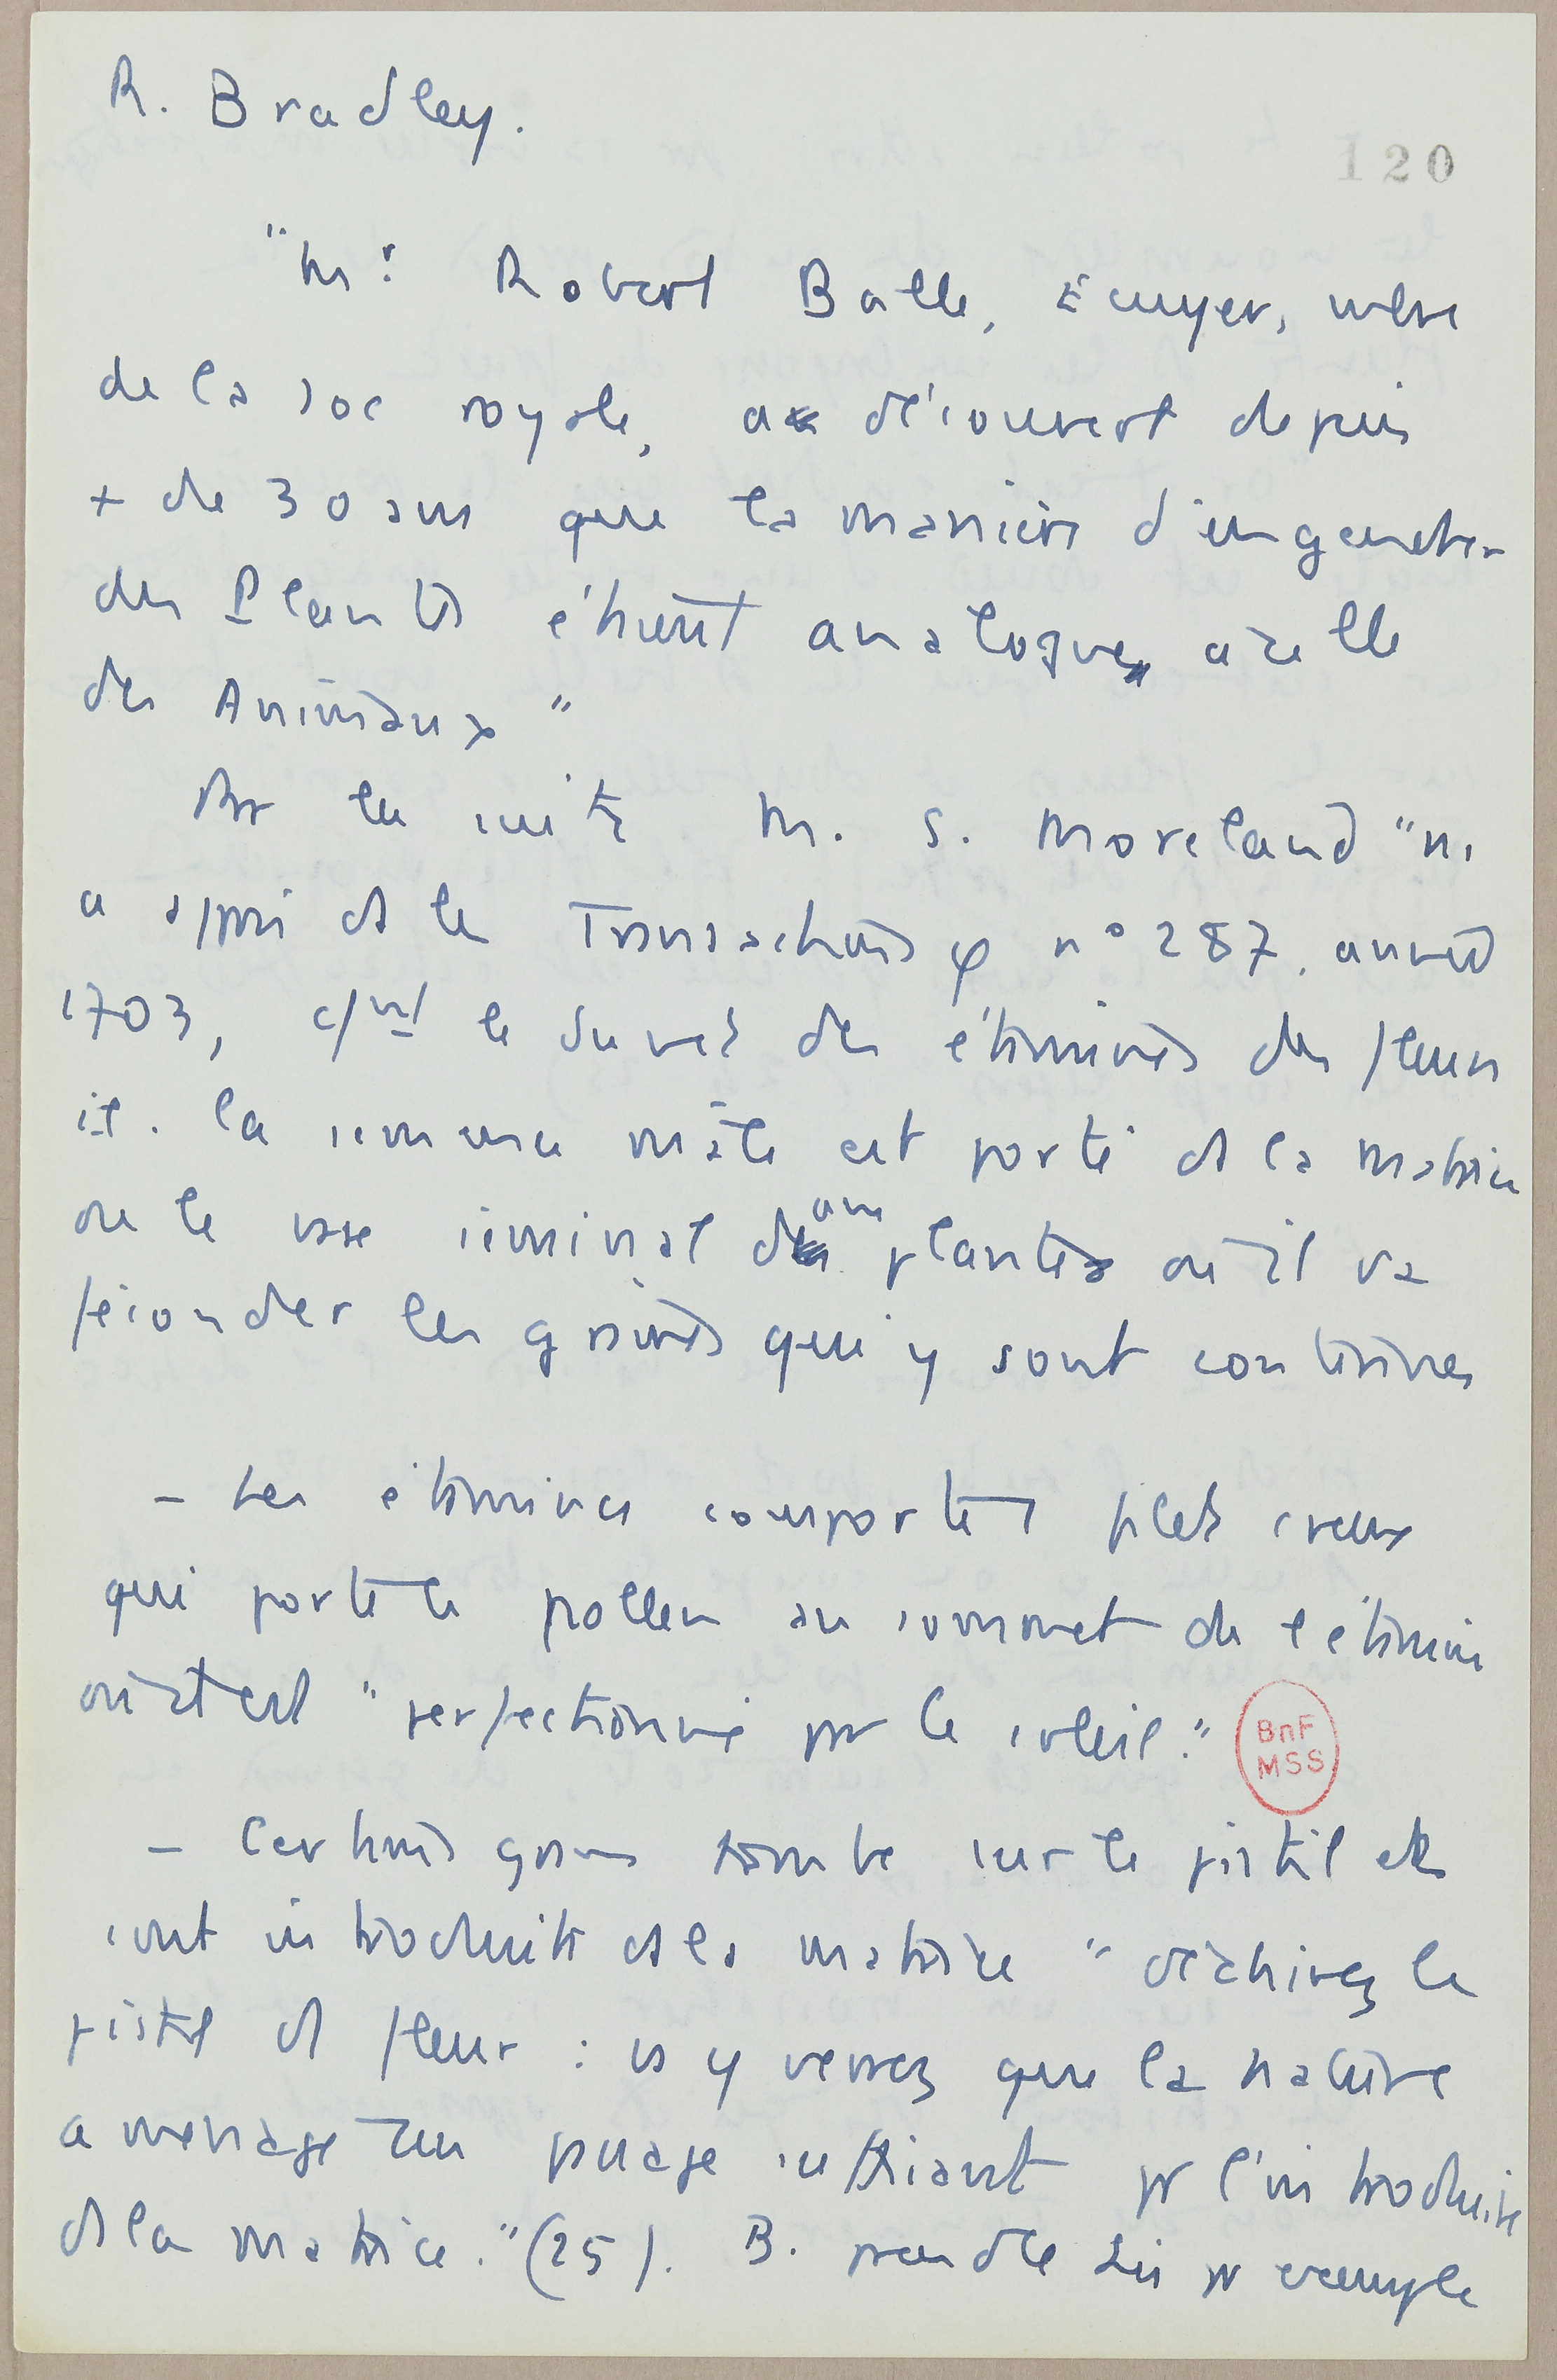 R. Bradley.
120
"Mr. Robert Balle, Ecuyer, mbre
de la soc royale, a découvert depuis
+ de 30 ans que la manière d'engendrer
des Plantes étaient analogue à celle
des Animaux"
Par la suite M. S. Moreland "ns
a appris ds les Transactions φ n° 287, année
1703, cmt le duvet des étamines des fleurs
i.e. la semence mâle est porté ds la matrice
ou le vase séminal d'une plante où il va
féconder les graines qui y sont contenues
- Les étamines comportent filets creux
qui porte le pollen au sommet de l'étamine
où il est "perfectionné par le soleil."
BnF
MSS
- Certains grains tombe sur le pistil et
sont introduits ds la matrice "déchirez le
pistil d fleur : vs y verrez que la nature
a menagé un passage suffisant pr l'introduire
ds la matrice." (25). B. prend le Lis pr exemple